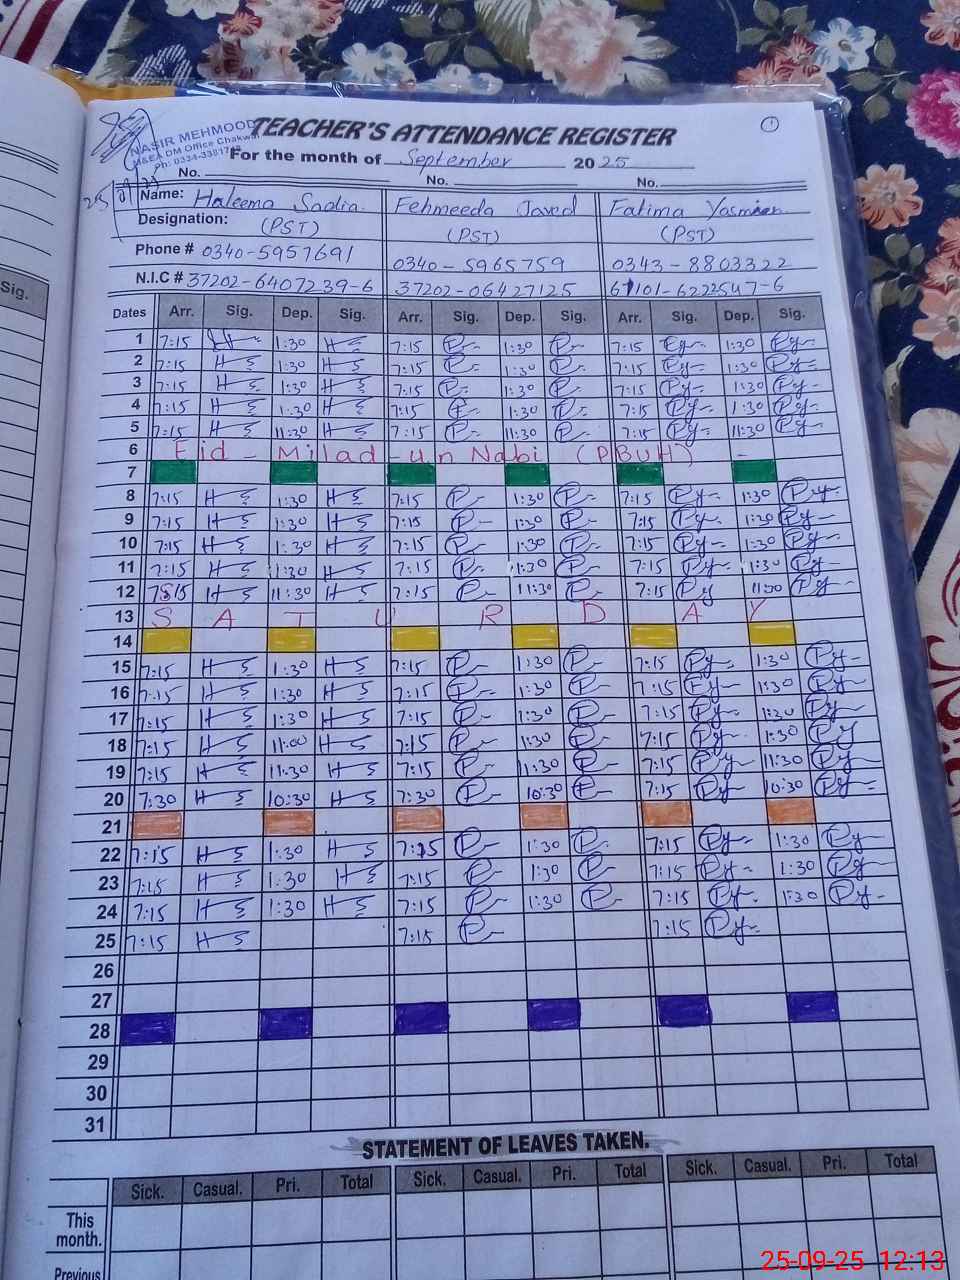 Sig.
NASIR MEHMOOD
M&EA DM Office Chakwal
TEACHER'S ATTENDANCE REGISTER
1
For the month of September 2025
No. No. No.
Name: Haleema Sadia Fehmeeda Javed Fatima Yasmeen
Designation: (PST) (PST) (PST)
Phone # 0340-5957691 0340-5965759 0343-8803322
N.I.C # 37202-6407239-6 37202-06427125 61101-6222547-6
Dates Arr. Sig. Dep. Sig. Arr. Sig. Dep. Sig. Arr. Sig. Dep. Sig.
1 7:15 1:30 HS 7:15 1:30 7:15 1:30
2 7:15 HS 1:30 HS 7:15 1:30 7:15 1:30
3 7:15 HS 1:30 HS 7:15 1:30 7:15 1:30
4 7:15 HS 1:30 HS 7:15 1:30 7:15 1:30
5 7:15 HS 11:30 HS 7:15 11:30 7:15 11:30
6 Eid - Milad - un Nabi (PBUH)
7
8 7:15 HS 1:30 HS 7:15 1:30 7:15 1:30
9 7:15 HS 1:30 HS 7:15 1:30 7:15 1:30
10 7:15 HS 1:30 HS 7:15 1:30 7:15 1:30
11 7:15 HS 1:30 HS 7:15 1:30 7:15 1:30
12 7:15 HS 11:30 HS 7:15 11:30 7:15 11:30
13 S A T U R D A Y
14
15 7:15 HS 1:30 HS 7:15 1:30 7:15 1:30
16 7:15 HS 1:30 HS 7:15 1:30 7:15 1:30
17 7:15 HS 1:30 HS 7:15 1:30 7:15 1:30
18 7:15 HS 11:00 HS 7:15 1:30 7:15 1:30
19 7:15 HS 11:30 HS 7:15 11:30 7:15 11:30
20 7:30 HS 10:30 HS 7:30 10:30 7:15 10:30
21
22 7:15 HS 1:30 HS 7:15 1:30 7:15 1:30
23 7:15 HS 1:30 HS 7:15 1:30 7:15 1:30
24 7:15 HS 1:30 HS 7:15 1:30 7:15 1:30
25 7:15 HS 7:15 7:15
26
27
28
29
30
31
STATEMENT OF LEAVES TAKEN.
Sick. Casual. Pri. Total Sick. Casual. Pri. Total Sick. Casual. Pri. Total
This
month.
Previous
25-09-25 12:13